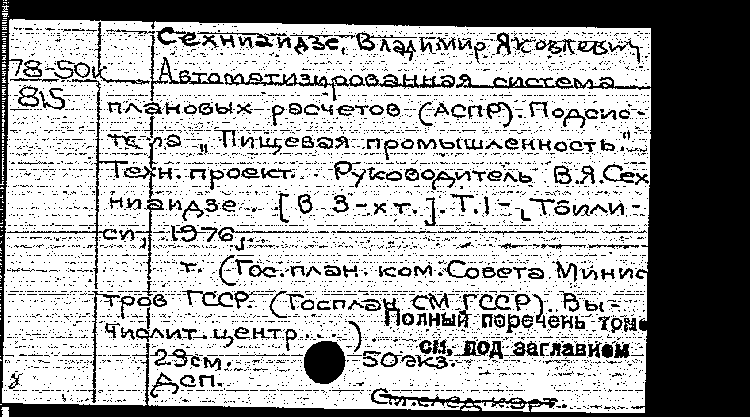 Сехниаидзе, Владимир Яковлевич
78-50к
815
Автоматизированная система
плановых расчетов (АСПР). Подсис-
тема „Пищевая промышленность".
Техн. проект. . Руководитель В.Я.Сех
ниаидзе. . [В 3-х т.]. Т.1- Тбили-
си, 1976,.
т. (Гос. план. ком. Совета Минис
тров ГССР. (Госплан СМ ГССР). Вы-
числит. центр ...).
Полный перечень томо
см. под заглавием
29см. 50экз.
Дсп.
См. след. карт.